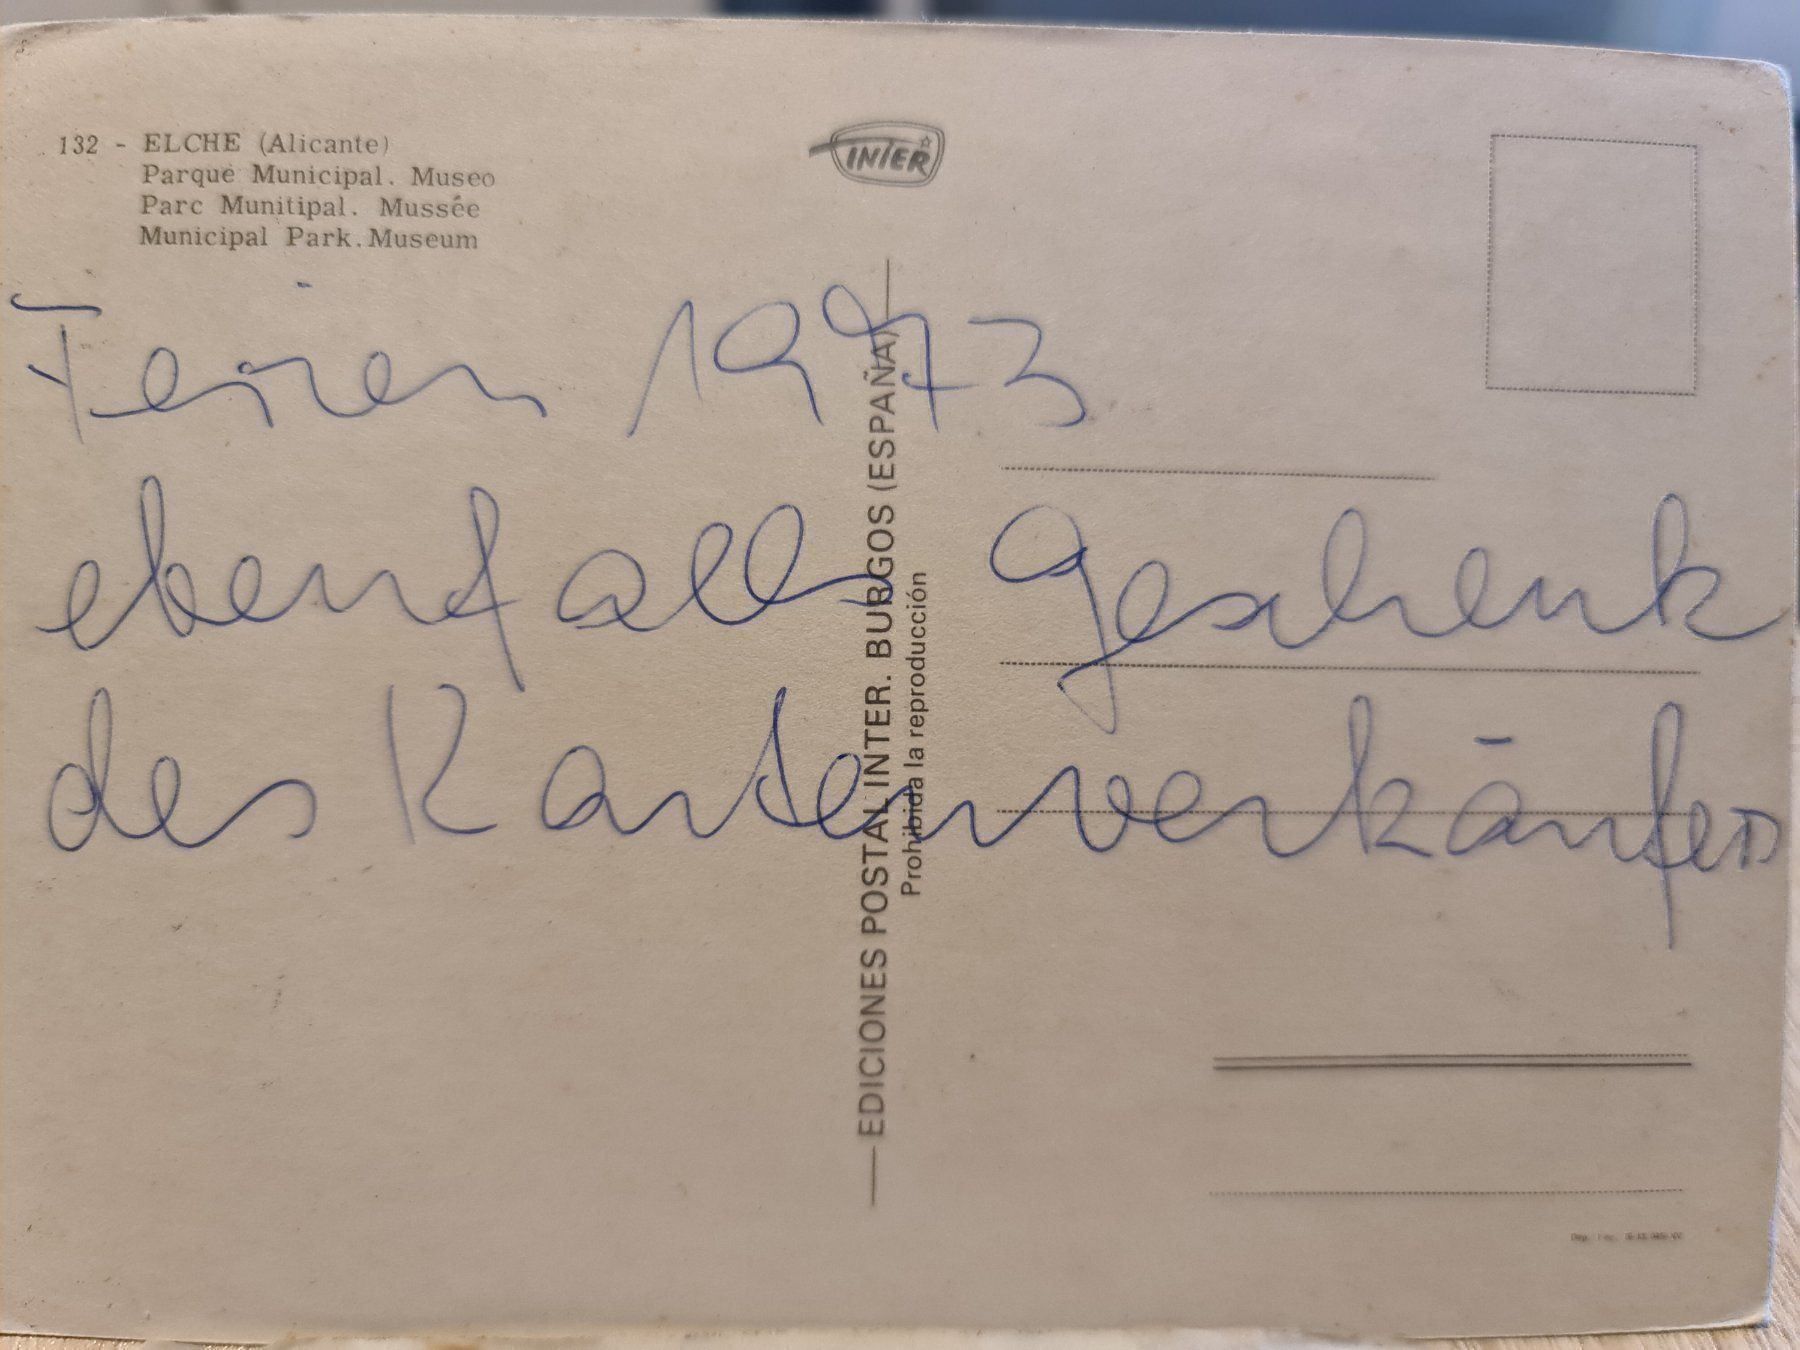 132 - ELCHE (Alicante)
Parque Municipal. Museo
Parc Munitipal. Mussée
Municipal Park. Museum
INTER
Ferien 1973
ebenfalls Geschenk
des Kartenverkäufers
EDICIONES POSTAL INTER. BURGOS (ESPAÑA)
Prohibida la reproducción